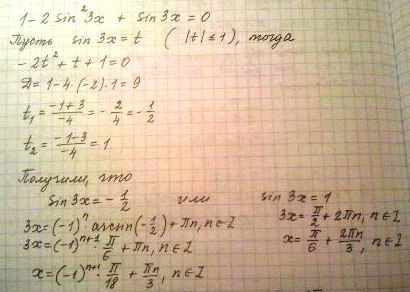 1-2 sin²3x + sin 3x = 0
Пусть sin 3x = t ( |t| ≤ 1 ), тогда
-2t² + t + 1 = 0
Д = 1 - 4·(-2)·1 = 9
t₁ = (-1+3)/(-4) = -2/4 = -1/2
t₂ = (-1-3)/(-4) = 1
Получили, что
sin 3x = -1/2 или sin 3x = 1
3x = (-1)ⁿ · arcsin(-1/2) + πn, n∈Z 3x = π/2 + 2πn, n∈Z
3x = (-1)ⁿ⁺¹ · π/6 + πn, n∈Z x = π/6 + 2πn/3, n∈Z
x = (-1)ⁿ⁺¹ · π/18 + πn/3, n∈Z